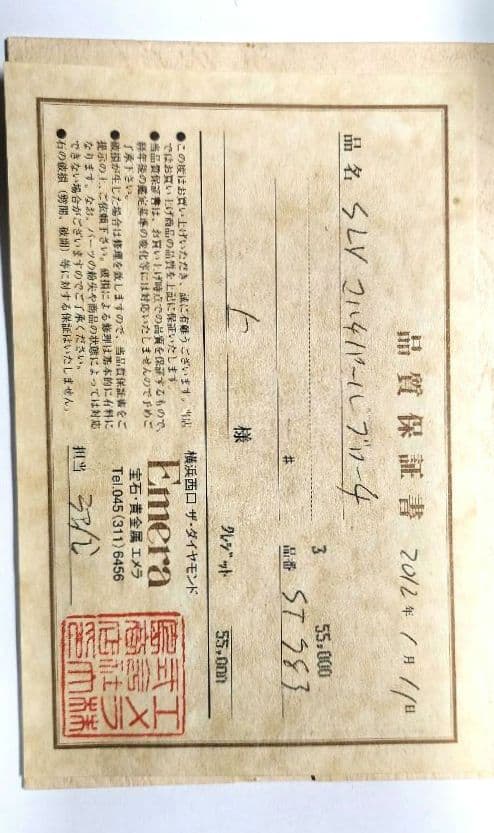 品質保証書
2012年 1月 11日
品名 SLV コハクパールブローチ
3 55,000
# 品番 ST 383
様
クレジット 55,000
●この度はお買い上げいただき、誠に有難うございます。当店
ではお買い上げ商品の品質を上記に保証いたします。
●当品質保証書は、お買い上げ時点での品質を保証するもので、
経年後の鑑定基準の変化等には対応いたしませんので予めご
了承下さい。
●破損が生じた場合は修理を致しますので、当品質保証書をご
提示の上、ご依頼下さい。破損による修理は基本的に有料に
なります。なお、パーツの紛失や商品の状態によっては対応
できない場合がございますのでご了承ください。
●石の破損(劈開、破歯)等に対する保証はいたしません。
横浜西口 ザ・ダイヤモンド
Emera
宝石・貴金属 エメラ
Tel.045(311)6456
担当